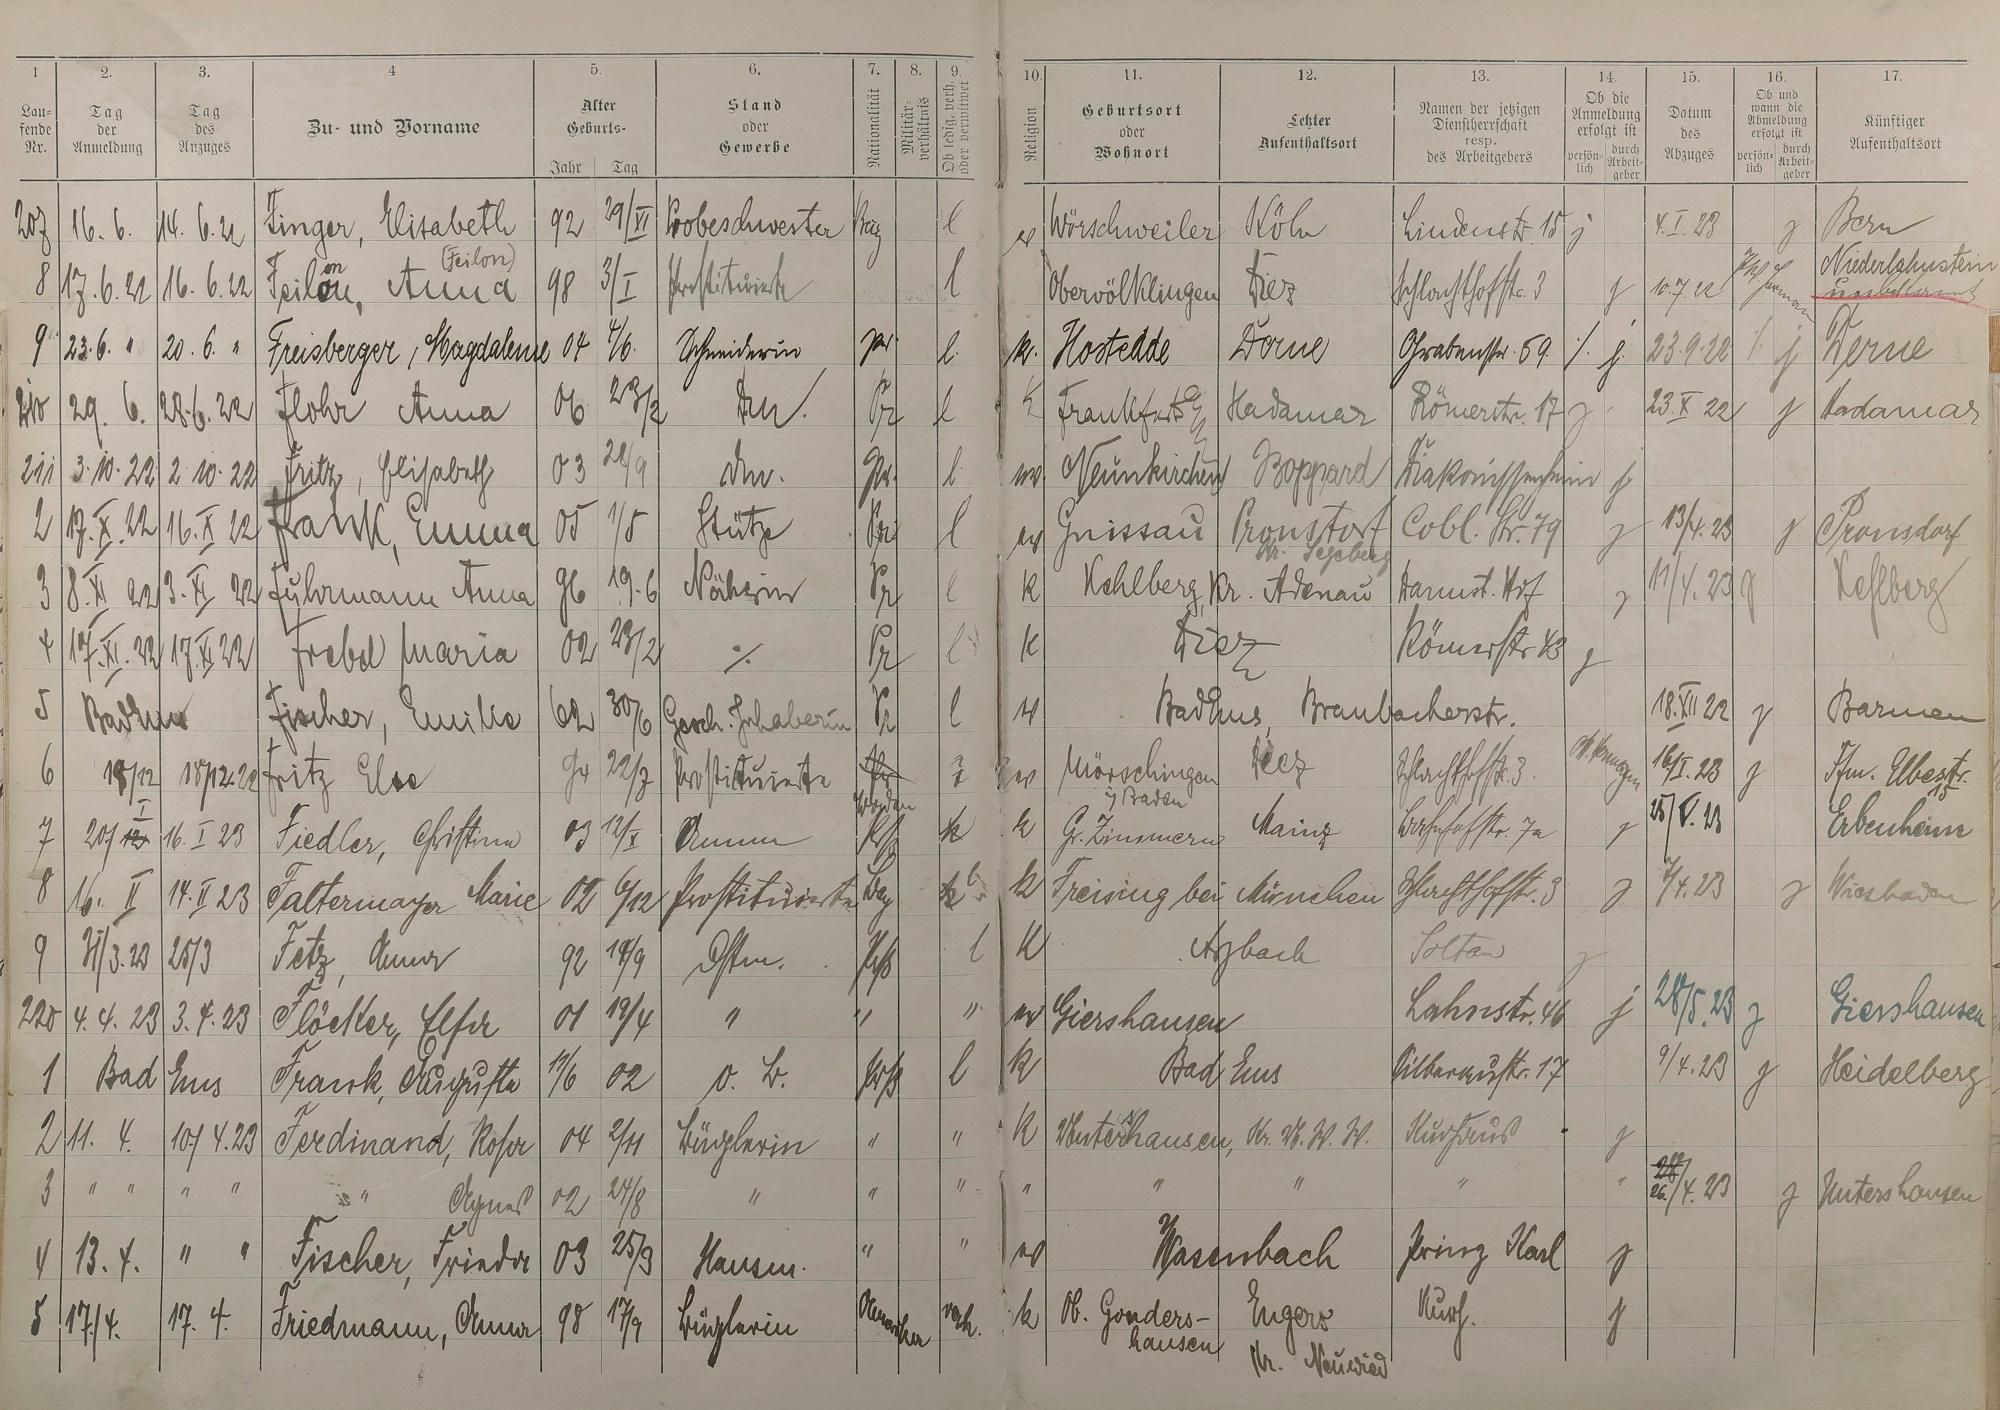 1 2. 3. 4 5. 6. 7. 8. 9. 10. 11. 12. 13. 14. 15. 16. 17.
Lau-fende Nr. Tag der Anmeldung Tag des Anzuges Zu- und Vorname Alter Geburts- Jahr Tag Stand oder Gewerbe Nationalität Militär-verhältnis Ob ledig, verh. oder verwitwet Religion Geburtsort oder Wohnort Letzter Aufenthaltsort Namen der jetzigen Dienstherrschaft resp. des Arbeitgebers Ob die Anmeldung erfolgt ist persön-lich durch Arbeit-geber Datum des Abzuges Ob und wann die Abmeldung erfolgt ist persön-lich durch Arbeit-geber Künftiger Aufenthaltsort
207 16. 6. 14. 6. 22 Finger, Elisabeth 92 29/XI Probeschwester l ev Wörschweiler Köln Lindenstr. 15 j 4. I. 23 j Bern
8 17. 6. 22 16. 6. 22 Feilon, Anna (Feilon) 98 3/I Prostituierte l Obervölklingen Diez Schlachthofstr. 3 j 10. 7 22 Niederlahnstein
9 23. 6. " 20. 6. " Freisberger, Magdalene 04 4/6. Schneiderin pr. l. k. Hostedde Derne Grabenstr. 59. /. j. 23. 9. 22 /. j Derne
210 29. 6. 28. 6. 22 Flohr Anna 06 23/2 Dm. Pr l K Frankfurt Hadamar Römerstr. 17 j 23. X 22 j Hadamar
211 3. 10. 22 2 10. 22 Fritz, Elisabeth 03 28/9 dm. Pr. l. ev. Neunkirchen Boppard Diakonissenheim j
2 17. X. 22 16. X 22 Frank, Emma 05 1/5 Stütze Pr l ev Gnissau Pronstorf Kr. Segeberg Cobl. Str. 79 j 13/4. 23 j Pronsdorf
3 8. XI 22 3. XI 22 Fuhrmann Anna 96 19. 6 Näherin Pr l k Kehlberg, Kr. Adenau Darmst. Hof j 11/4. 23 j Kehlberg
4 17. XI. 22 17. XI 22 Frebel Maria 02 23/2 ./. Pr l k Diez Römerstr 43 j
5 Bad Ems Fischer, Emilie 62 30/6 Gesch. Inhaberin Pr l ev Bad Ems, Braubacherstr. 18. XII 22 j Barmen
6 18/12 18/12. 22 Fritz Else 22/7 Prostituierte Baden ev Mörschingen i/ Baden Diez Schlachthofstr. 3. 16/I. 23 j Ffm. Elbestr. 15
7 20/I 16. I 23 Fiedler, Christine 03 12/X Amme k k Gr. Zimmern Mainz Bahnhofstr. 7a j 25/V. 23 Erbenheim
8 16. II 14. II 23 Faltermayer Marie 02 6/12 Prostituierte Bay l k Freising bei München Schlachthofstr. 3 j 7/4. 23 j Wiesbaden
9 31/3. 23 25/3 Fetz, Anna 92 14/9 Dstm. Prß l K Arzbach Soltau j
220 4. 4. 23 3. 4. 23 Flöcker, Elsa 01 19/4 " " " ev Giershausen Lahnstr. 46 j 28/5. 23 j Giershausen
1 Bad Ems Frank, Auguste 11/6 02 o. B. Prß l k Bad Ems Silberaustr. 17 9/4. 23 j Heidelberg
2 11. 4. 10/4. 23 Ferdinand, Rosa 04 2/11 Büglerin " " K Untershausen, Kr. U. W. W. Kurhaus j
3 " " " " " Agnes 02 24/8 " " " " " " " " 26./4. 23 j Untershausen
4 13. 4. " " Fischer, Frieda 03 25/3 Hausm. " " ev Wasenbach Prinz Karl j
5 17/4. 17. 4. Friedmann, Anna 98 17/9 Büglerin verh. k Ob. Gonders-hausen Engers Kr. Neuwied Kurh. j